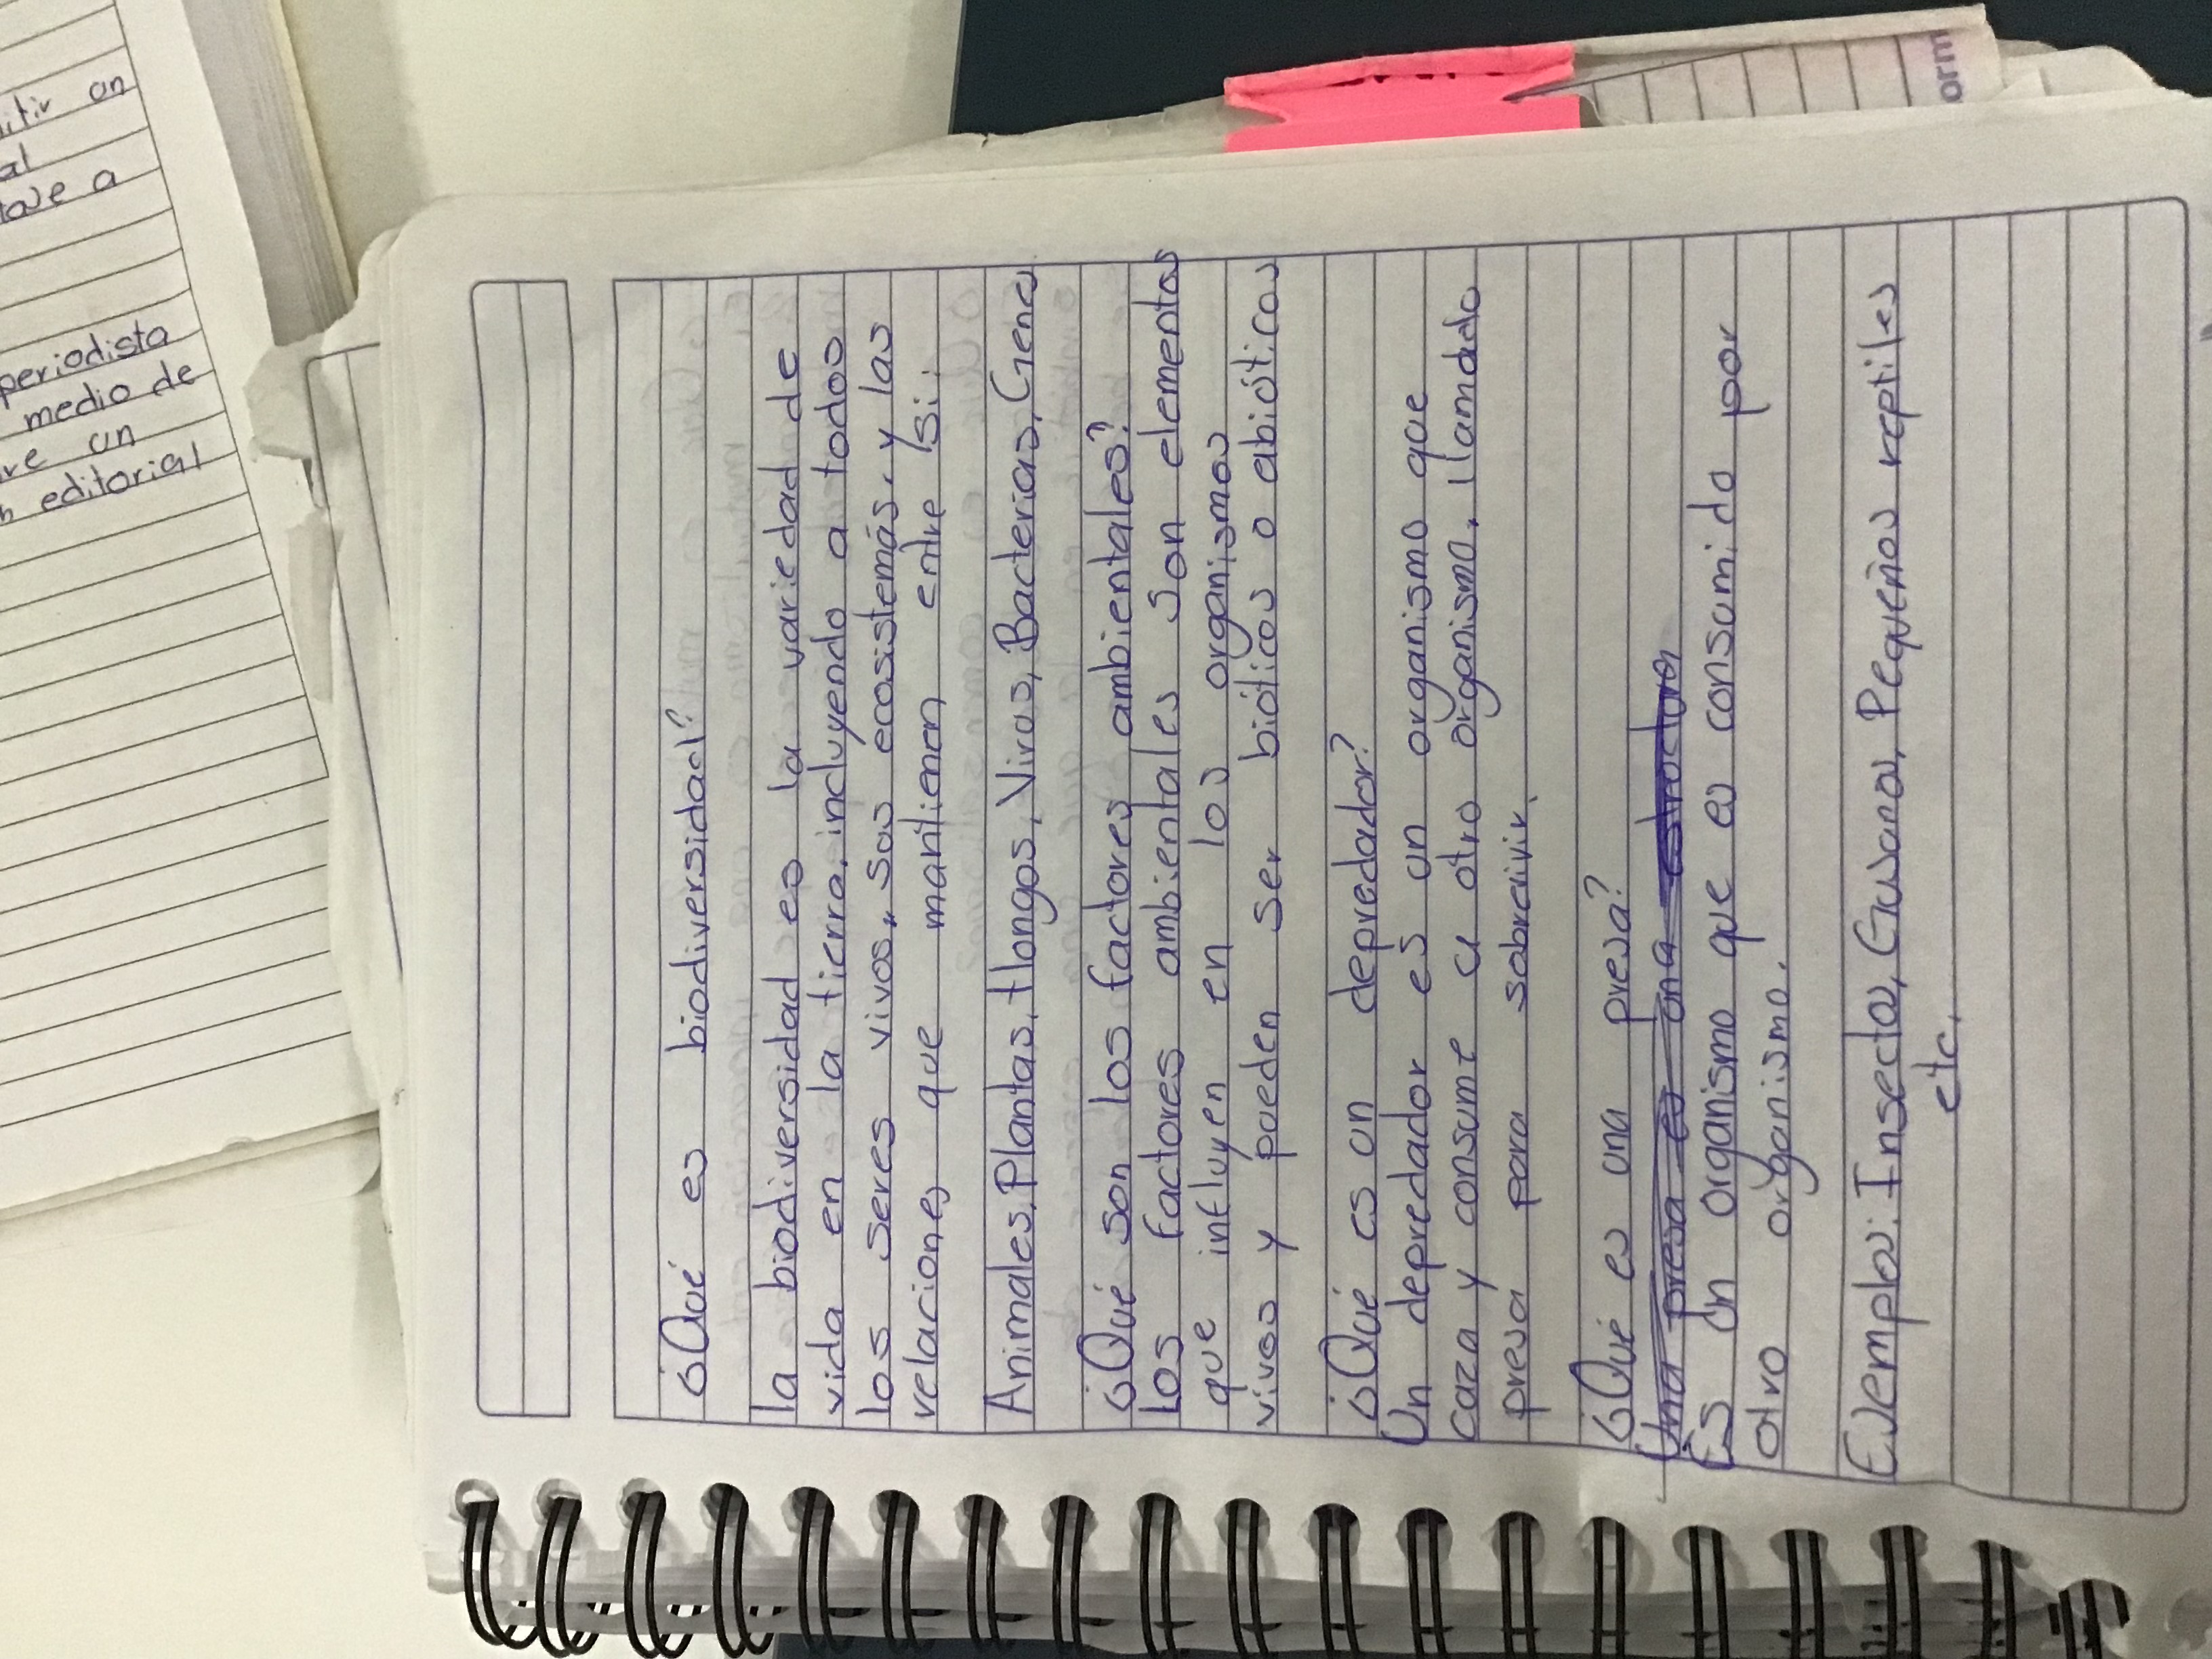 ¿Qué es biodiversidad?
la biodiversidad es la variedad de
vida en la tierra, incluyendo a todos
los seres vivos, sus ecosistemás, y las
relaciones que mantienen entre si:
Animales, Plantas, Hongos, Virus, Bacterias, Genes
¿Qué son los factores ambientales?
Los factores ambientales son elementos
que influyen en los organismos
vivos y pueden ser bióticos o abióticos
¿Qué es un depredador?
Un depredador es un organismo que
caza y consume a otro organismo, llamado
presa para sobrevivir.
¿Qué es una presa?
Una presa es una estructura
Es Un organismo que es consumido por
otro organismo.
Ejemplos: Insectos, Gusanos, Pequeños reptiles
etc.
itir un
al
a
periodista
medio de
un
editorial
orm